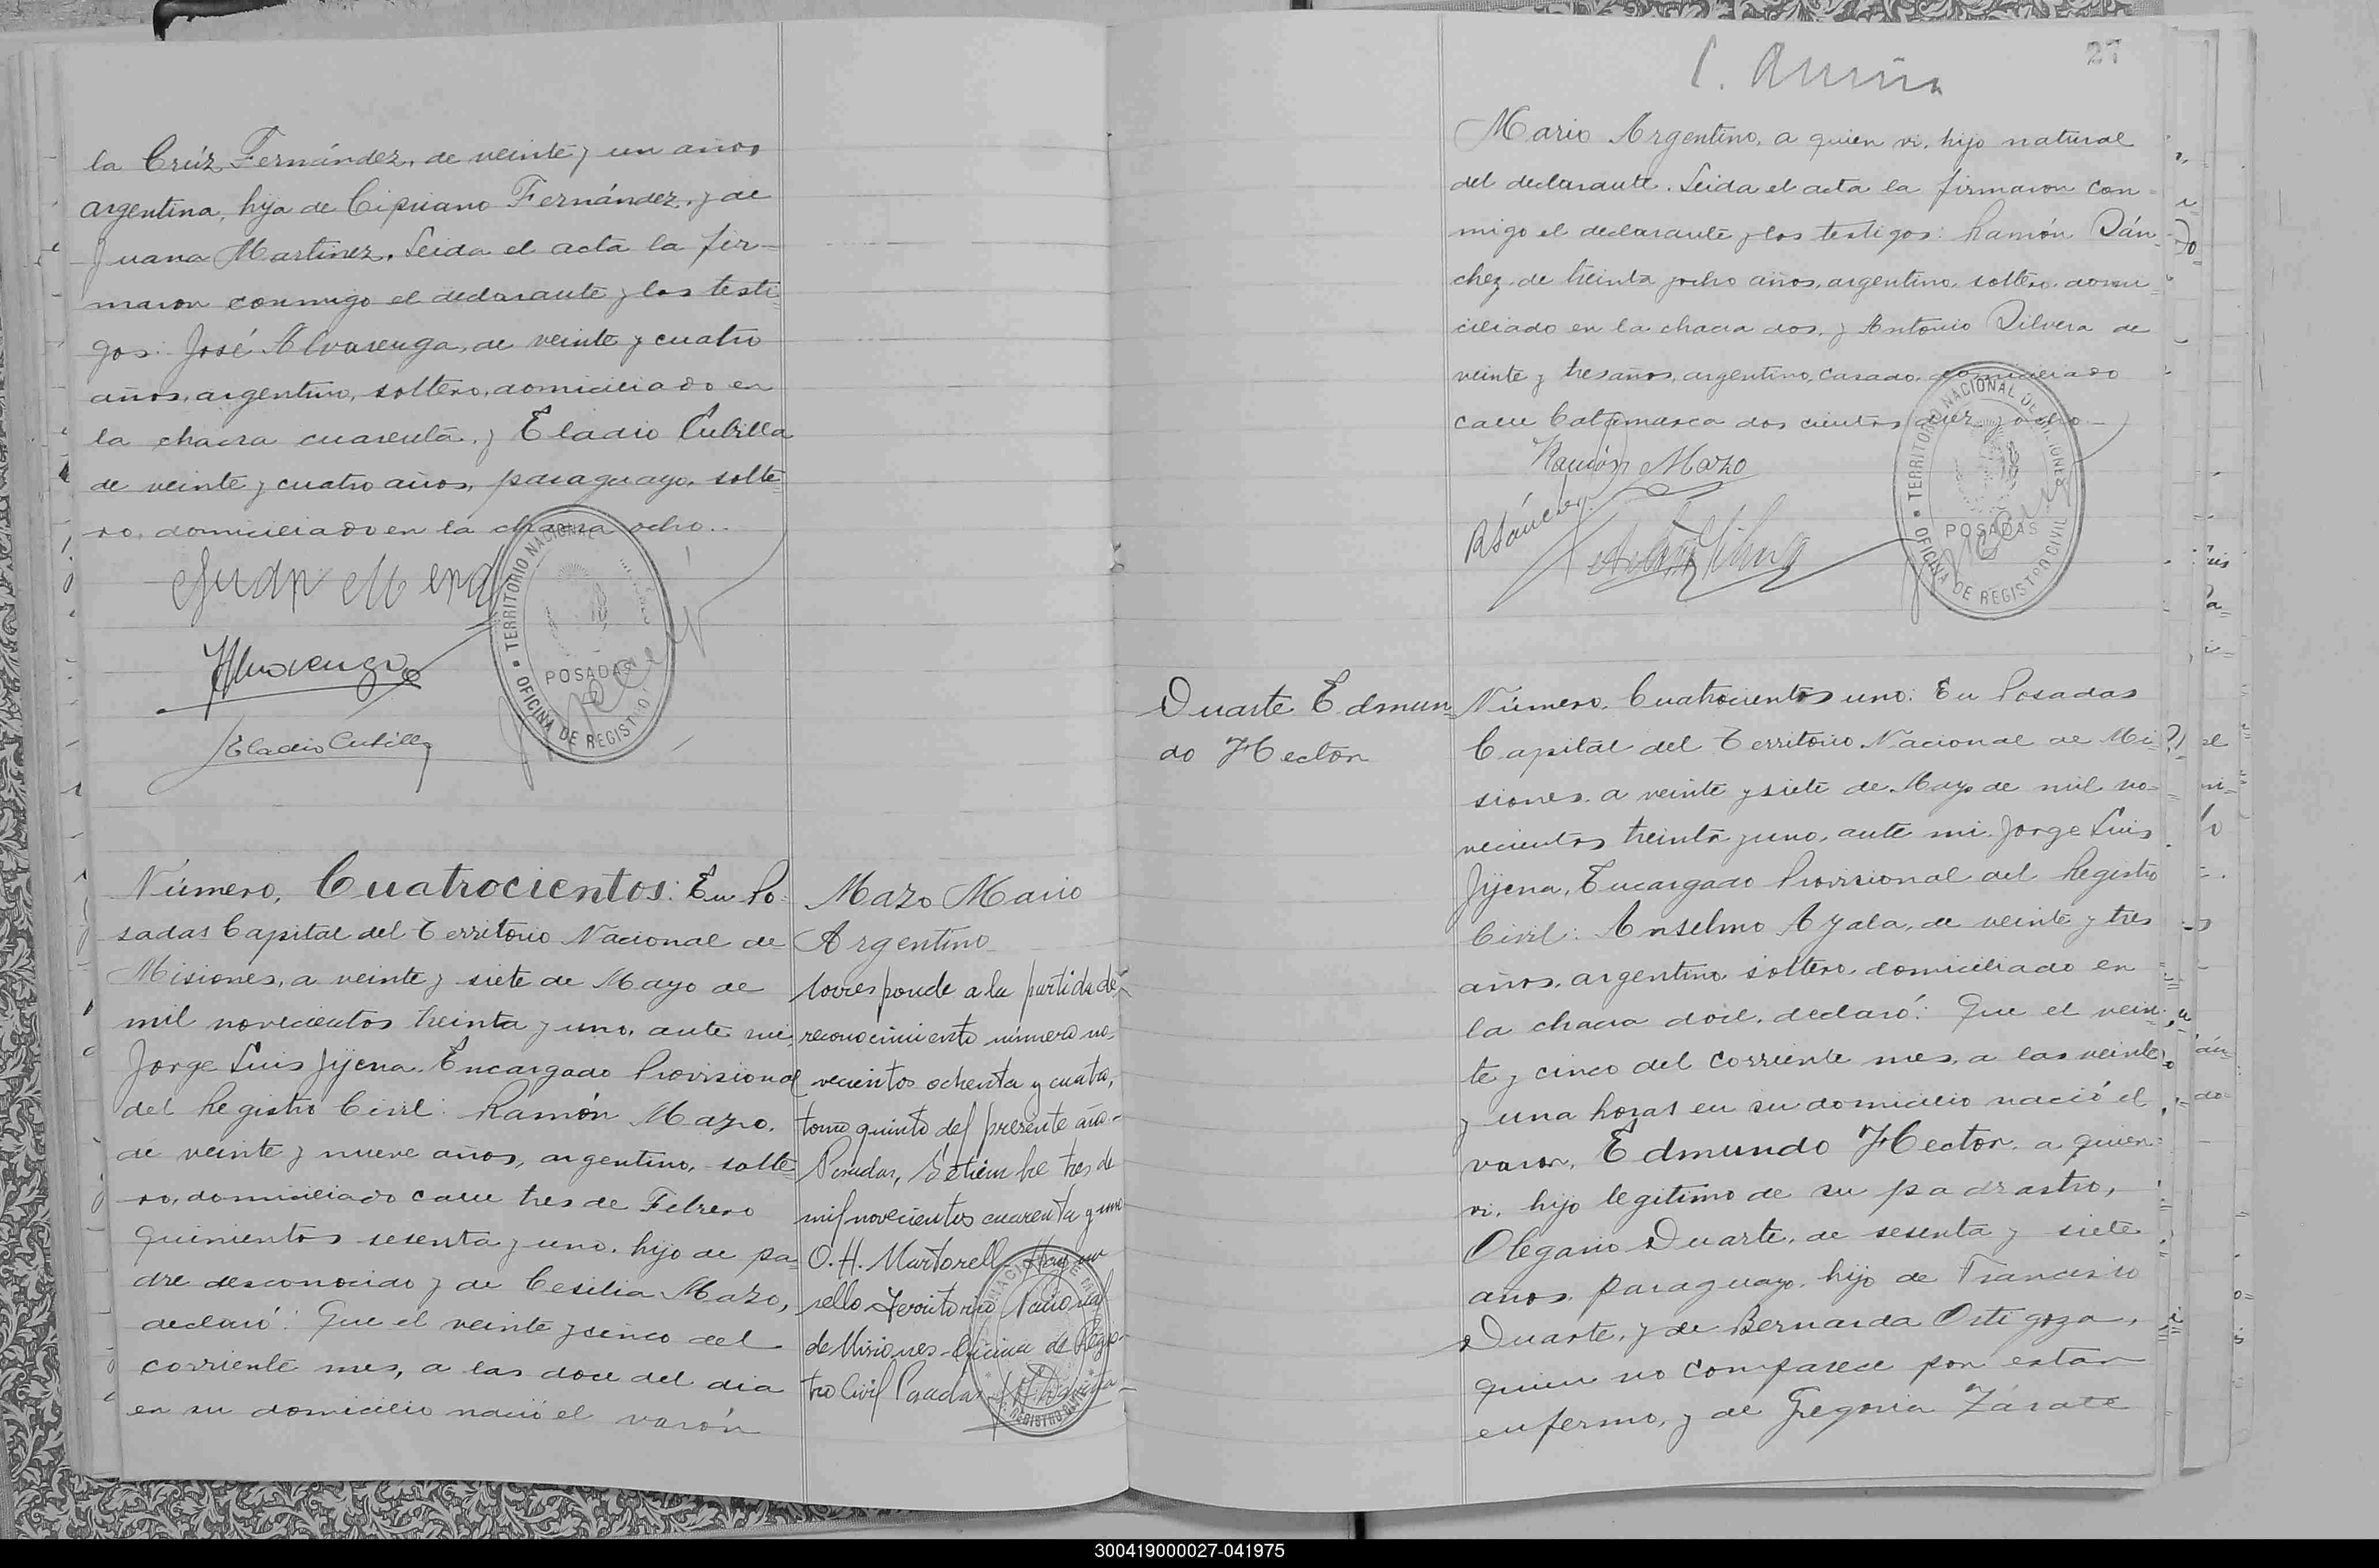 la Crúz Fernández, de veinte y un años
argentina, hija de Cipriano Fernández, y de
Juana Martinez. Leida el acta la fir=
maron conmigo el declarante y los testi=
gos: José Alvarenga, de veinte y cuatro
años, argentino, soltero, domiciliado en
la chacra cuarenta, y Eladio Cubilla
de veinte y cuatro años, paraguayo, solte=
ro, domiciliado en la chacra ocho.
Juan
Alvarenga
Eladio Cubilla
TERRITORIO NACIONAL
POSADAS
OFICINA DE REGISTRO
Número, Cuatrocientos: En Po=
sadas Capital del Territorio Nacional de
Misiones, a veinte y siete de Mayo de
mil novecientos treinta y uno, ante mi
Jorge Luis Jijena, Encargado Provisional
del Registro Civil: Ramón Mazo,
de veinte y nueve años, argentino, solte=
ro, domiciliado calle tres de Febrero
quinientos sesenta y uno, hijo de pa=
dre desconocido y de Cesilia Mazo,
declaró: Que el veinte y cinco del
corriente mes, a las doce del dia
en su domicilio nació el varón
Mazo Mario
Argentino
Corresponde a la partida de
reconocimiento número no=
vecientos ochenta y cuatro,
tomo quinto del presente año.-
Posadas, Setiembre tres de
mil novecientos cuarenta y uno
O. H. Martorell. Hay un
sello Territorio Nacional
de Misiones-Oficina de Regis-
tro Civil Posadas
27
Mario Argentino, a quien vi, hijo natural
del declarante. Leida el acta la firmaron con=
migo el declarante y los testigos: Ramón Sán=
chez, de treinta y ocho años, argentino, soltero, domi=
ciliado en la chacra dos, y Antonio Silvera de
veinte y tres años, argentino, casado, domiciliado
calle Catamarca dos cientos diez y ocho.-
Ramón Mazo
RSánchez
TERRITORIO NACIONAL DE MISIONES
POSADAS
OFICINA DE REGISTRO CIVIL
Duarte Edmun=
do Hector
Número, Cuatrocientos uno: En Posadas
Capital del Territorio Nacional de Mi=
siones, a veinte y siete de Mayo de mil no=
vecientos treinta y uno, ante mi Jorge Luis
Jijena, Encargado Provisional del Registro
Civil: Anselmo Ayala, de veinte y tres
años, argentino, soltero, domiciliado en
la chacra doce, declaró: Que el vein=
te y cinco del corriente mes, a las veinte
y una horas en su domicilio nació el
varon, Edmundo Hector, a quien
vi, hijo legitimo de su padrastro,
Olegario Duarte, de sesenta y siete
años, paraguayo, hijo de Francisco
Duarte, y de Bernarda Ortigoza,
quien no comparece por estar
enfermo, y de Gregoria Zárate
300419000027-041975